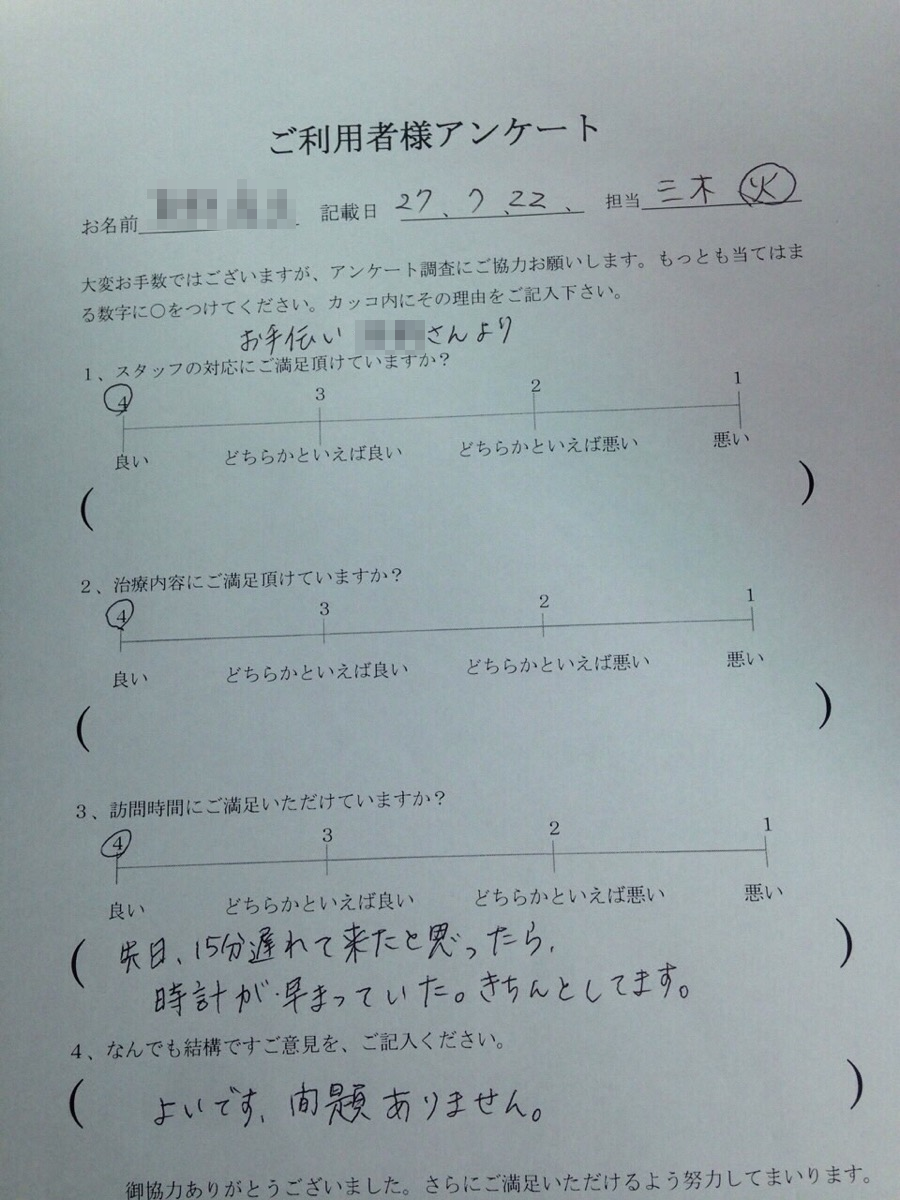 ご利用者様アンケート
お名前 記載日 27、7、22、 担当 三木 火
大変お手数ではございますが、アンケート調査にご協力お願いします。もっとも当てはま
る数字に○をつけてください。カッコ内にその理由をご記入下さい。
お手伝い さんより
1、スタッフの対応にご満足頂けていますか？
4 3 2 1
良い どちらかといえば良い どちらかといえば悪い 悪い
( )
2、治療内容にご満足頂けていますか？
4 3 2 1
良い どちらかといえば良い どちらかといえば悪い 悪い
( )
3、訪問時間にご満足いただけていますか？
4 3 2 1
良い どちらかといえば良い どちらかといえば悪い 悪い
(先日、15分遅れて来たと思ったら、
時計が早まっていた。きちんとしてます。)
4、なんでも結構ですご意見を、ご記入ください。
(よいです、問題ありません。)
御協力ありがとうございました。さらにご満足いただけるよう努力してまいります。